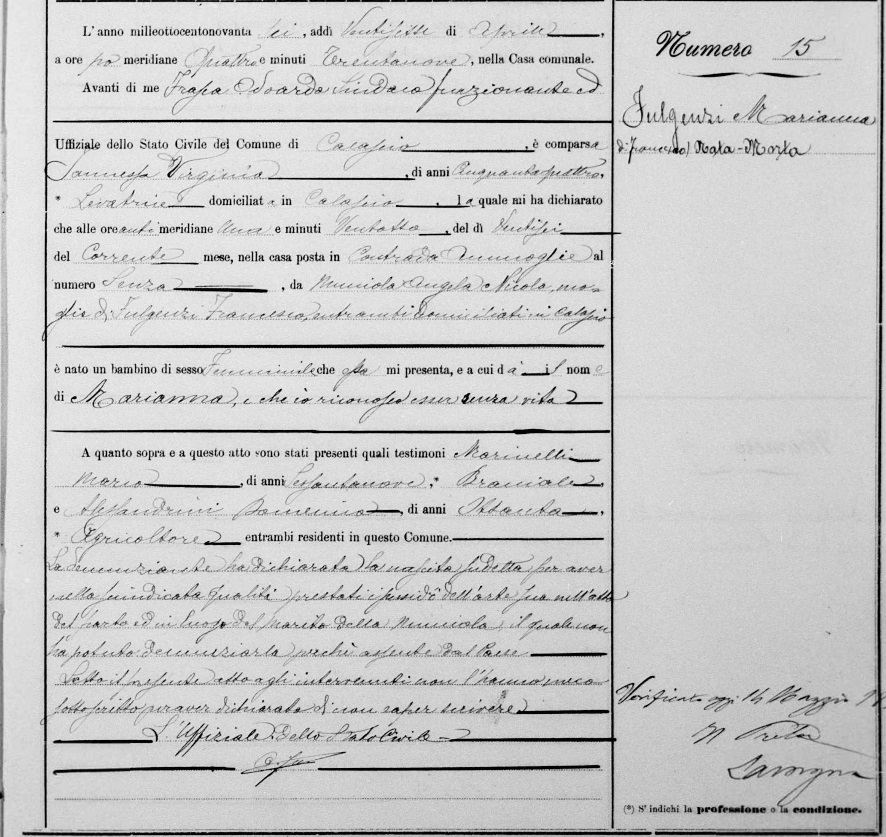 L'anno milleottocentonovanta sei, addì Ventisette di Aprile,
a ore po meridiane Quattro e minuti Trentanove, nella Casa comunale.
Avanti di me Edoardo Sindaco funzionante ed
Uffiziale dello Stato Civile del Comune di Calascio, è comparsa
Virginia, di anni cinquantaquattro,
* Levatrice domiciliata in Calascio, la quale mi ha dichiarato
che alle ore anti meridiane Una e minuti Ventotto, del dì Ventisei
del Corrente mese, nella casa posta in Contrada al
numero Senza, da Angela Nicola, mo-
glie di Fulgenzi Francesco, entrambi domiciliati in Calascio
è nato un bambino di sesso Femminile che essa mi presenta, e a cui dà il nome
di Marianna, e che io riconosco esser senza vita
A quanto sopra e a questo atto sono stati presenti quali testimoni Marinelli
Mario, di anni Sessantanove, * Braciale,
e Alessandrini Domenico, di anni Ottanta,
* Agricoltore entrambi residenti in questo Comune.
La denunziante ha dichiarata la nascita sudetta per aver
nella suindicata qualità prestati i sussidi dell'arte sua nell'atto
del parto ed in luogo del Marito della, il quale non
ha potuto denunziarla perchè assente dal Paese
Letto il presente atto agli intervenuti non l'hanno meco
sottoscritto per aver dichiarato di non saper scrivere
L'Uffiziale dello Stato Civile
Numero 15
Fulgenzi Marianna
di Francesco) Nata-Morta
Verificato oggi 14 Maggio
Il Pretore
(*) S'indichi la professione o la condizione.